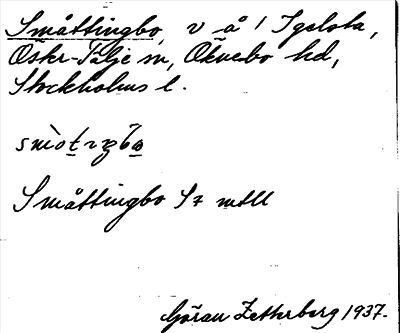 Småttingbo, v å / Igelota,
Öster-Tälje sn, Öknebo hd,
Stockholms l.
Småttingbo Sz mtll
Göran Zetterberg 1937.